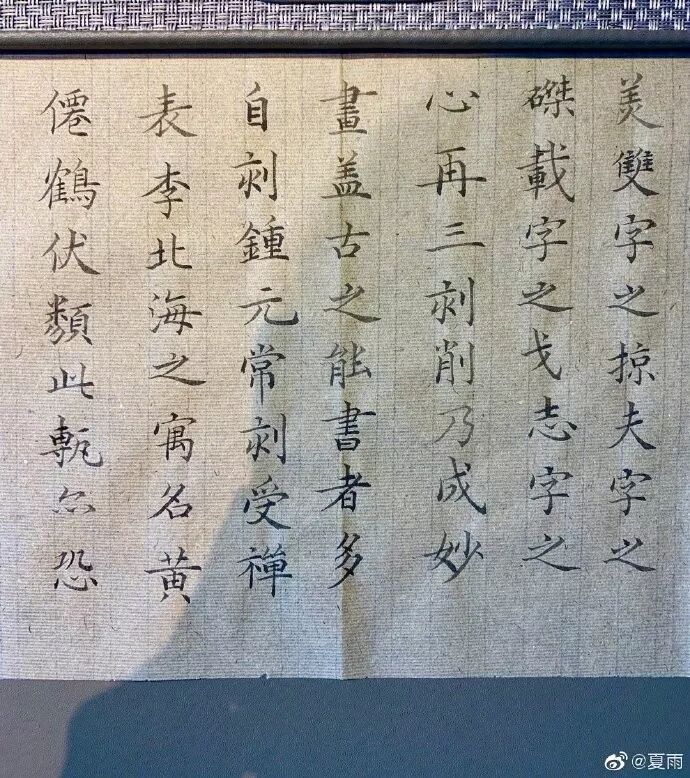 美雙字之掠夫字之
磔載字之戈志字之
心再三刻削乃成妙
畫盖古之能書者多
自刻鍾元常刻受禪
表李北海之寓名黄
僊鶴伏類此甎尒恐
@夏雨